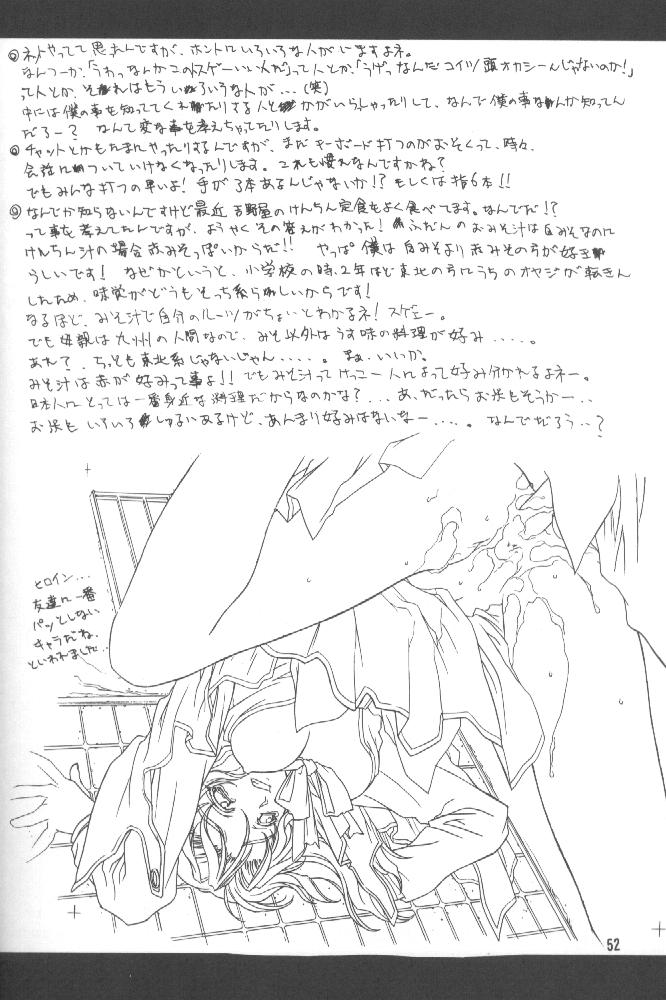 ◎ネットやってて思ったんですが、ホントにいろいろな人がいますよネ。
なんつーか、「うわっなんかこの人スゲーいい人だ」って人とか、「うげっなんだコイツ！頭オカシーんじゃないのか！」
って人とか、それはもういろいろな人が…(笑)
中には僕の事を知っててくれたりする人とかがいらっしゃったりして、なんで僕の事なんか知ってん
だろー？ なんて変な事を考えちゃってたりします。
◎チャットとかもたまにやったりするんですが、まだキーボード打つのがおそくって、時々、
会話についていけなくなったりします。これも慣れなんですかね？
でもみんな打つの早いよ！手が3本あるんじゃないか!? もしくは指6本!!
◎なんでか知らないんですけど最近吉野屋のけんちん定食をよく食べてます。なんでだ!?
って事を考えてたんですが、ようやくその答えがわかった！ふだんのおみそ汁は白みそなのに
けんちん汁の場合赤みそっぽいからだ!! やっぱ僕は白みそより赤みその方が好き
らしいです！ なぜかというと、小学校の時、2年ほど東北の方にうちのオヤジが転きん
したため、味覚がどうもそっち系らしいからです！
なるほど、みそ汁で自分のルーツがちょいとわかるネ！スゲェー。
でも母親は九州の人間なので、みそ以外はうす味の料理が好み…。
あれ？ ちっとも東北系じゃないじゃん…。まぁ、いいか。
みそ汁は赤が好みって事よ!! でもみそ汁ってけっこー人によって好み分かれるよネー。
日本人にとっては一番身近な料理だからなのかな？…あ、だったらお米もそうかー…
お米もいろいろしゅるいあるけど、あんまり好みはないなー…。なんでだろう…？
ヒロイン…
友達に一番
パッとしない
キャラだね、
といわれました…
52